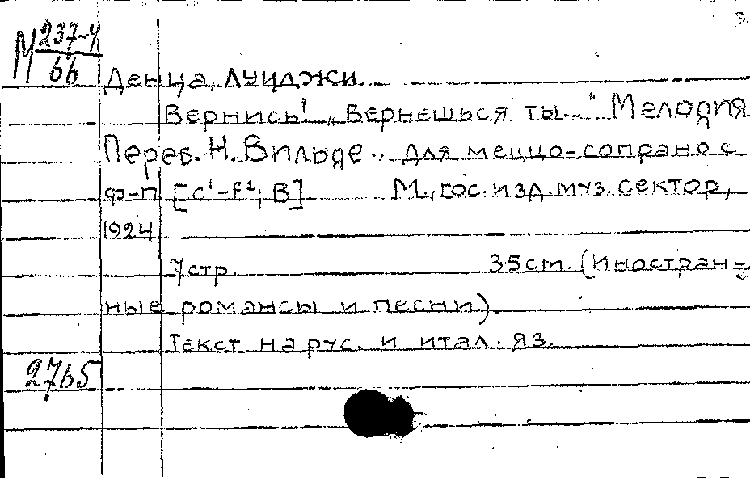 М 237-У
66
Денца, Луиджи.
Вернись! „Вернешься ты.." Мелодия
Перев. Н. Вильде.. Для меццо-сопрано с
ф-п [c¹-f²; B] М., гос. изд. муз. сектор,
1924
7 стр. 35 cm. (Иностран-
ные романсы и песни).
Текст на рус. и итал. яз.
2765